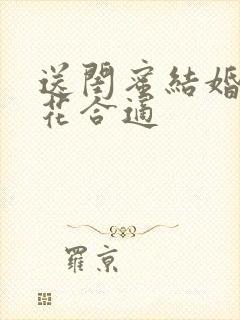 送閨蜜結婚
花合適
羅京